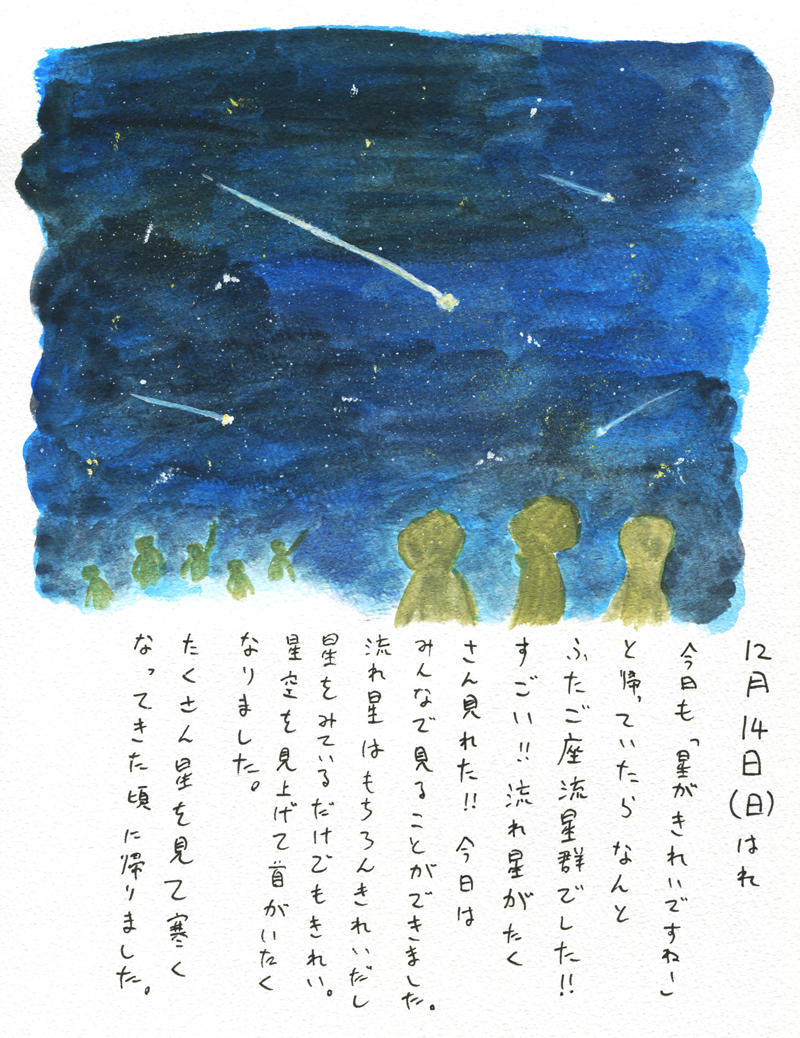 12月14日(日)はれ
今日も「星がきれいですねー」
と帰っていたらなんと
ふたご座流星群でした!!
すごい!!流れ星がたく
さん見れた!!今日は
みんなで見ることができました。
流れ星はもちろんきれいだし
星をみているだけでもきれい。
星空を見上げて首がいたく
なりました。
たくさん星を見て寒く
なってきた頃に帰りました。